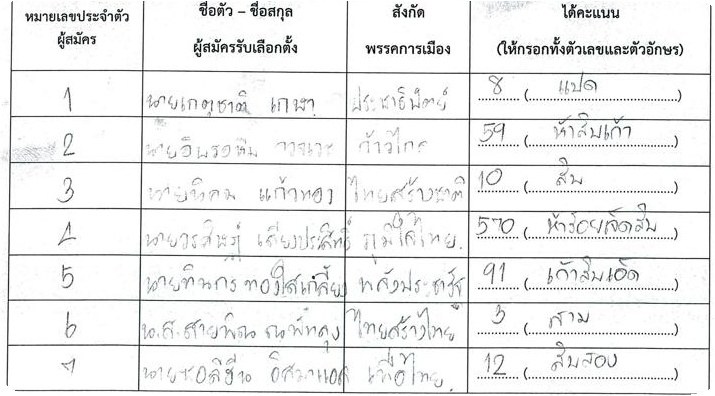 หมายเลขประจำตัว ผู้สมัคร ชื่อตัว – ชื่อสกุล ผู้สมัครรับเลือกตั้ง สังกัด พรรคการเมือง ได้คะแนน (ให้กรอกทั้งตัวเลขและตัวอักษร)
1 นายเกตุชาติ เกษา ประชาธิปัตย์ 8 (แปด)
2 ก้าวไกล 59 (ห้าสิบเก้า)
3 นายนิคม แก้วทอง ไทยสร้างชาติ 10 (สิบ)
4 นายวรศิษฎ์ เลียงประสิทธิ์ ภูมิใจไทย. 570 (ห้าร้อยเจ็ดสิบ)
5 นายทินกร ทองใสเกลี้ยง พลังประชารัฐ 91 (เก้าสิบเอ็ด)
6 น.ส.สายพิณ ณ พัทลุง ไทยสร้างไทย 3 (สาม)
7 เพื่อไทย. 12 (สิบสอง)